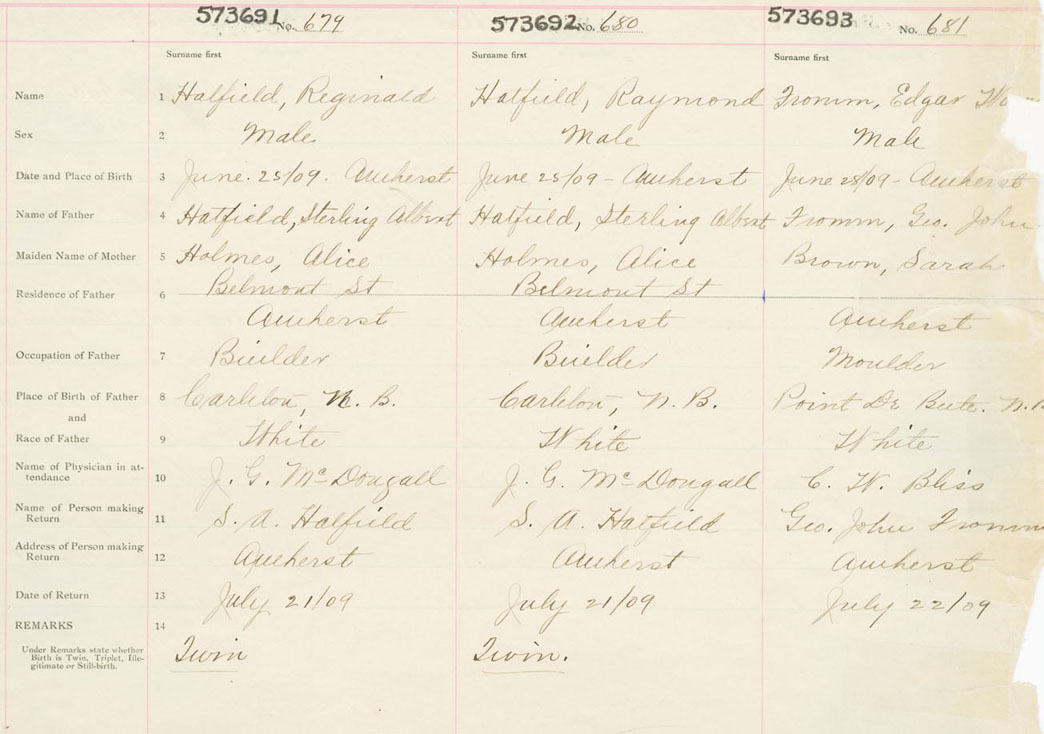 573691 No. 679 573692 No. 680 573693 No. 681
Surname first Surname first Surname first
Name 1 Hatfield, Reginald Hatfield, Raymond Fromm, Edgar
Sex 2 Male Male Male
Date and Place of Birth 3 June. 25/09. Amherst June 25/09 - Amherst June 28/09 - Amherst
Name of Father 4 Hatfield, Sterling Albert Hatfield, Sterling Albert Fromm, Geo. John
Maiden Name of Mother 5 Holmes, Alice Holmes, Alice Brown, Sarah
Residence of Father 6 Belmont St Belmont St
Amherst Amherst Amherst
Occupation of Father 7 Builder Builder Moulder
Place of Birth of Father 8 Carleton, N. B. Carleton, N. B. Point De Bute. N.B
and
Race of Father 9 White White White
Name of Physician in at-
tendance 10 J. G. McDougall J. G. McDougall C. W. Bliss
Name of Person making
Return 11 S. A. Hatfield S. A. Hatfield Geo. John Fromm
Address of Person making
Return 12 Amherst Amherst Amherst
Date of Return 13 July 21/09 July 21/09 July 22/09
REMARKS 14
Under Remarks state whether
Birth is Twin, Triplet, Ille-
gitimate or Still-birth.
Twin Twin.